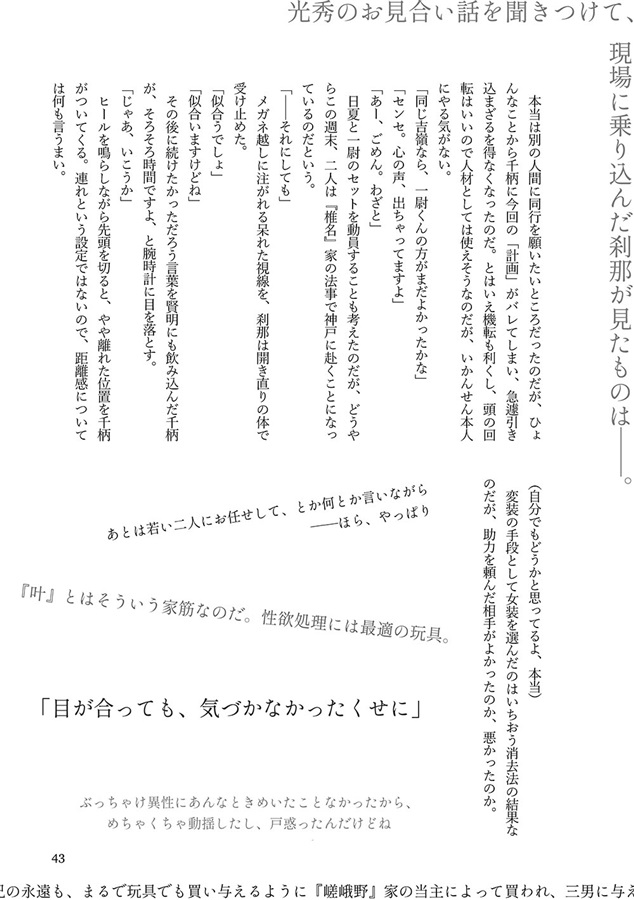 光秀のお見合い話を聞きつけて、
現場に乗り込んだ刹那が見たものは――。
本当は別の人間に同行を願いたいところだったのだが、ひょ
んなことから千柄に今回の「計画」がバレてしまい、急遽引き
込まざるを得なくなったのだ。とはいえ機転も利くし、頭の回
転はいいので人材としては使えそうなのだが、いかんせん本人
にやる気がない。
「同じ吉嶺なら、一尉くんの方がまだよかったかな」
「センセ。心の声、出ちゃってますよ」
「あー、ごめん。わざと」
日夏と一尉のセットを動員することも考えたのだが、どうや
らこの週末、二人は『椎名』家の法事で神戸に赴くことになっ
ているのだという。
「――それにしても」
メガネ越しに注がれる呆れた視線を、刹那は開き直りの体で
受け止めた。
「似合うでしょ」
「似合いますけどね」
その後に続けたかっただろう言葉を賢明にも飲み込んだ千柄
が、そろそろ時間ですよ、と腕時計に目を落とす。
「じゃあ、いこうか」
ヒールを鳴らしながら先頭を切ると、やや離れた位置を千柄
がついてくる。連れという設定ではないので、距離感について
は何も言うまい。
(自分でもどうかと思ってるよ、本当)
変装の手段として女装を選んだのはいちおう消去法の結果な
のだが、助力を頼んだ相手がよかったのか、悪かったのか。
あとは若い二人にお任せして、とか何とか言いながら
――ほら、やっぱり
『叶』とはそういう家筋なのだ。性欲処理には最適の玩具。
「目が合っても、気づかなかったくせに」
ぶっちゃけ異性にあんなときめいたことなかったから、
めちゃくちゃ動揺したし、戸惑ったんだけどね
43
の永遠も、まるで玩具でも買い与えるように『嵯峨野』家の当主によって買われ、三男に与え